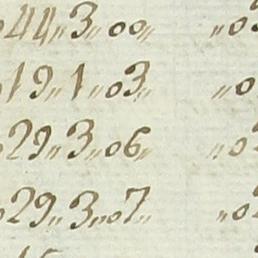 44〃3〃00〃 〃0
19〃1〃03〃 〃0
29〃3〃06〃 〃0
29〃3〃07〃 〃0